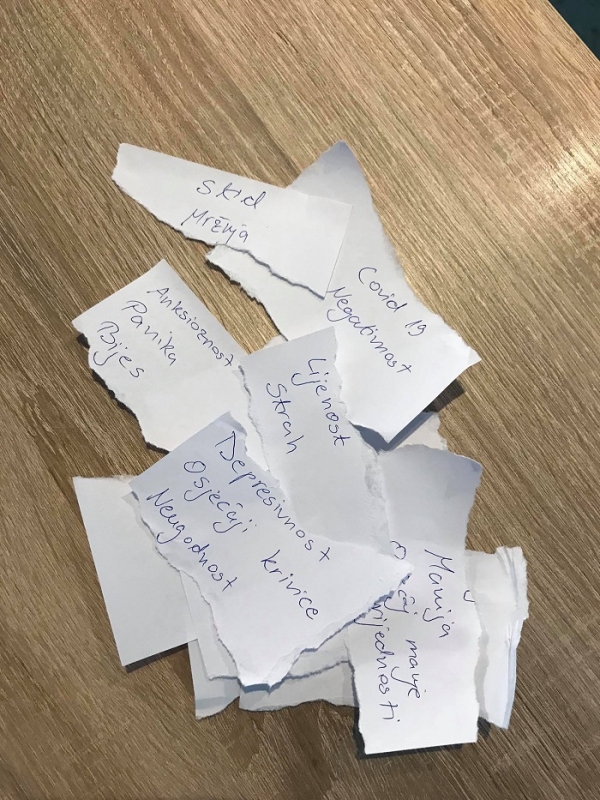 Stid
Mržnja
Covid 19
Negativnost
Anksioznost
Panika
Bijes
Lijenost
Strah
Depresivnost
Osjećaji krivice
Neugodnost
Manija
manje
rijednosti